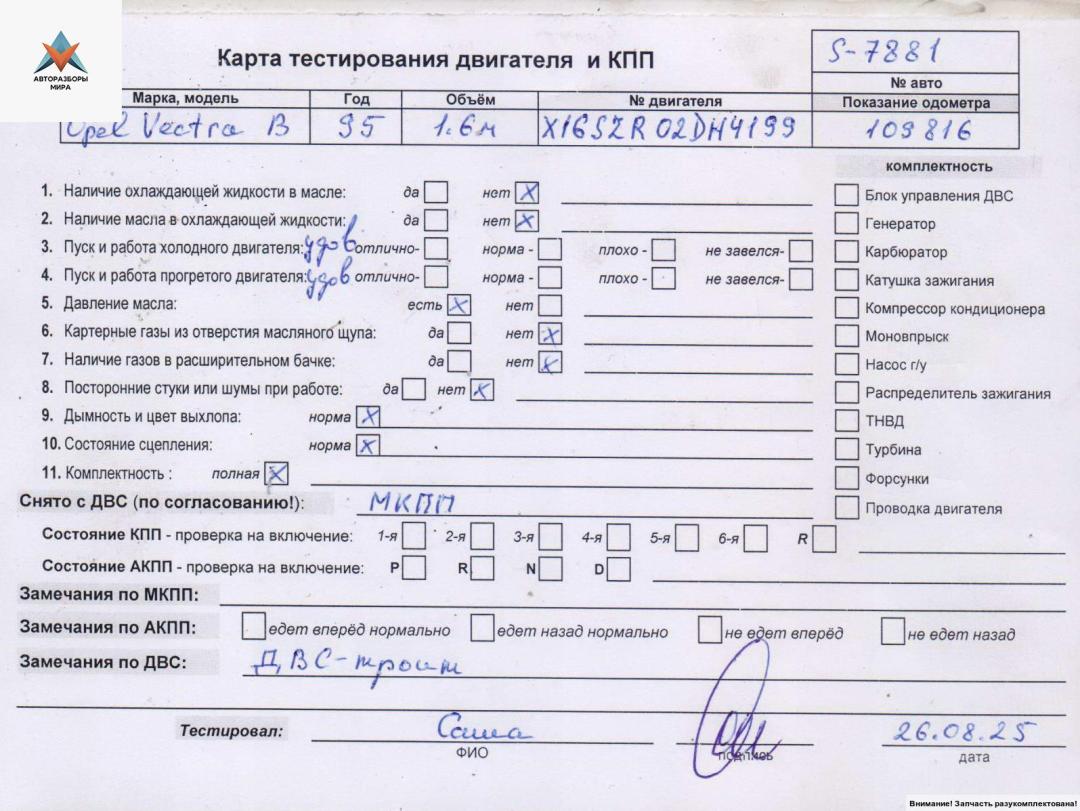 АВТОРАЗБОРЫ
МИРА
Карта тестирования двигателя и КПП
S-7881
№ авто
Марка, модель Год Объём № двигателя Показание одометра
Opel Vectra B 95 1.6м X16SZR 02DH4199 109816
комплектность
1. Наличие охлаждающей жидкости в масле: да нет X
Блок управления ДВС
2. Наличие масла в охлаждающей жидкости: да нет X
Генератор
3. Пуск и работа холодного двигателя: удов отлично- норма - плохо - не завелся-
Карбюратор
4. Пуск и работа прогретого двигателя: удов отлично- норма - плохо - не завелся-
Катушка зажигания
5. Давление масла: есть X нет
Компрессор кондиционера
6. Картерные газы из отверстия масляного щупа: да нет X
Моновпрыск
7. Наличие газов в расширительном бачке: да нет X
Насос г/у
8. Посторонние стуки или шумы при работе: да нет X
Распределитель зажигания
9. Дымность и цвет выхлопа: норма X
ТНВД
10. Состояние сцепления: норма X
Турбина
11. Комплектность : полная X
Форсунки
Снято с ДВС (по согласованию!): МКПП
Проводка двигателя
Состояние КПП - проверка на включение: 1-я 2-я 3-я 4-я 5-я 6-я R
Состояние АКПП - проверка на включение: P R N D
Замечания по МКПП:
Замечания по АКПП: едет вперёд нормально едет назад нормально не едет вперёд не едет назад
Замечания по ДВС: ДВС-троит
Тестировал: Саша 26.08.25
ФИО подпись дата
Внимание! Запчасть разукомплектована!